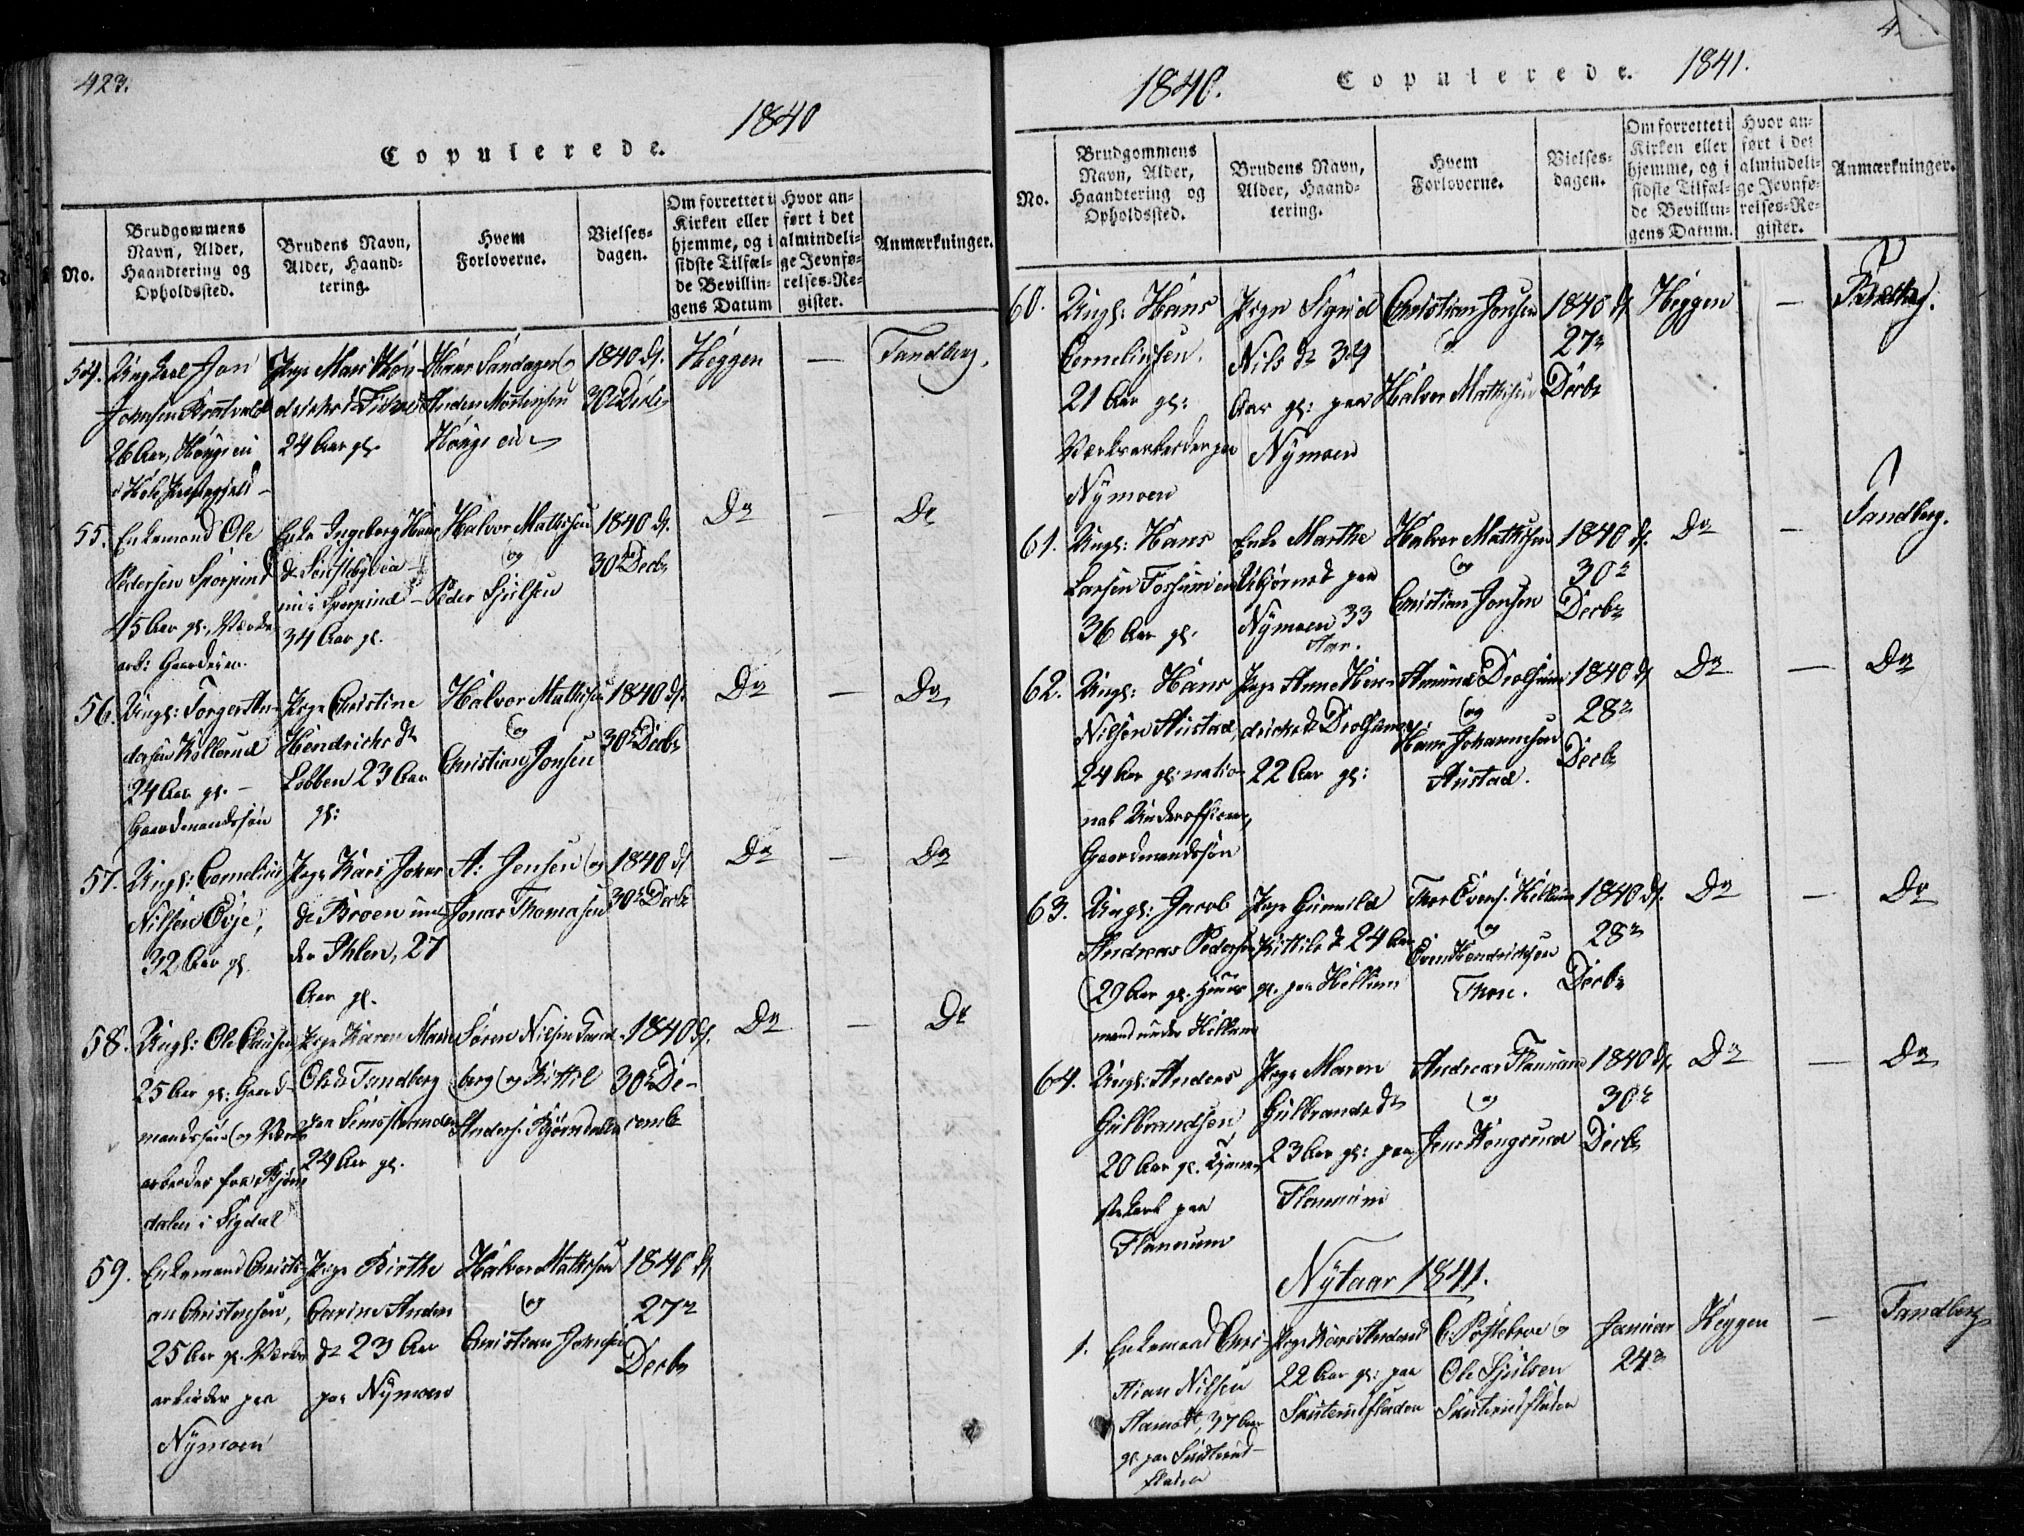 423.
1840
Copulerede.
No.
Brudgommens Navn, Alder, Haandtering og Opholdssted.
Brudens Navn, Alder, Haandtering.
Hvem Forloverne.
Vielsesdagen.
Om forrettet i Kirken eller hjemme, og i sidste Tilfælde Bevillingens Datum
Hvor anført i det almindelige Jevnførelses-Register.
Anmærkninger.
54. Ungkarl Jon
Johnsen
26 Aar,
Pige Mari
24 Aar gl.
1840 d.
30 Decbr
Heggen
—
Tandberg.
55. Enkemand Ole
Pedersen
45 Aar gl.,
Enke Ingeborg Hans
34 Aar gl.
Halvor Mathisen
og
Peder Sjulsen
1840 d.
30 Decbr
Do
—
Do
56. Ungk: Torger An-
dersen Kollerud
24 Aar gl. —
Gaardmandssøn
Pige Christine
Hendrichs dr
Lobben 23 Aar
gl:
Halvor Mathisen
og
Christian Jonsen
1840 d.
30 Decbr
Do
—
Do
57. Ungk: Cornelius
Nilsen Evje,
32 Aar gl.
Pige Kari Johns
dr Broen un-
der Ihlen, 27
Aar gl.
A: Jensen og
Jonas Thomasen
1840 d.
30 Decbr
Do
—
Do
58. Ungk: Ole Clausen
25 Aar gl: Gaard-
mandssøn og Værks
arbeider fra Bjørn-
dalen i Sigdal
Pige Karen Marie
Olsdr Tandberg
paa Simostranden
24 Aar gl.
Søren Nilsen Tand-
berg og Kittil
Anders: Bjørndalen
1840 d.
30 De-
cembr
Do
—
Do
59. Enkemand Christi-
an Christophsen,
25 Aar gl. Værks
arbeider paa
Nymoen
Pige Birthe
Carine Anders
dr 23 Aar
paa Nymoen
Halvor Mathisen
og
Christian Johnsen
1840 d.
27
Decbr
1840.
Copulerede.
1841.
No.
Brudgommens Navn, Alder, Haandtering og Opholdssted.
Brudens Navn, Alder, Haandtering.
Hvem Forloverne.
Vielsesdagen.
Om forrettet i Kirken eller hjemme, og i sidste Tilfælde Bevillingens Datum.
Hvor anført i det almindelige Jevnførelses-Register.
Anmærkninger.
60. Ungk: Hans
Corneliusen.
21 Aar gl:
Værksarbeider paa
Nymoen
Pige Sigrid
Nils dr 34
Aar gl: paa
Nymoen
Christian Jonsen
Halvor Mathisen
1840 d.
27
Decbr
Heggen
—
61. Ungk: Hans
Larsen Fossum
36 Aar gl.
Enke Marthe
paa
Nymoen 33
Aar.
Halvor Mathisen
og
Christian Jonsen
1840 d.
30
Decbr
Do
—
Tandberg.
62. Ungk: Hans
Nilsen Austad,
24 Aar gl: natio-
nal Underofficeer,
Gaardmandssøn
Pige Anne Hen-
drichsdr Drolsum
22 Aar gl:
Amund Drolsum
og
Hans Johannesen
Austad.
1840 d.
28
Decbr
Do
—
Do
63. Ungk: Jacob
Andreas Pedersen
29 Aar gl. Huus
mand under Hellum
Pige Gunnild
Kittils dr 24 Aar
gl. paa Hellum
Thor Evens: Hellum
og
Even Hendrichsen
Thon.
1840 d.
28
Decbr
Do
—
Do
64. Ungk: Anders
Gulbrandsen
20 Aar gl. Tjene-
stekarl paa
Flannum
Pige Maren
Gulbrands dr
23 Aar gl: paa
Flannum
Andreas Flannum
og
Jens Kongsrud
1840 d.
30
Decbr
Do
—
Do
Nytaar 1841.
1. Enkemand Chri-
stian Nilsen
37 Aar
gl. paa Skuterud-
fladen
Pige Kari
22 Aar gl: paa
Skuterudfladen
og
Ole Sjulsen
Skuterudfladen
Januar
24
Heggen
—
Tandberg